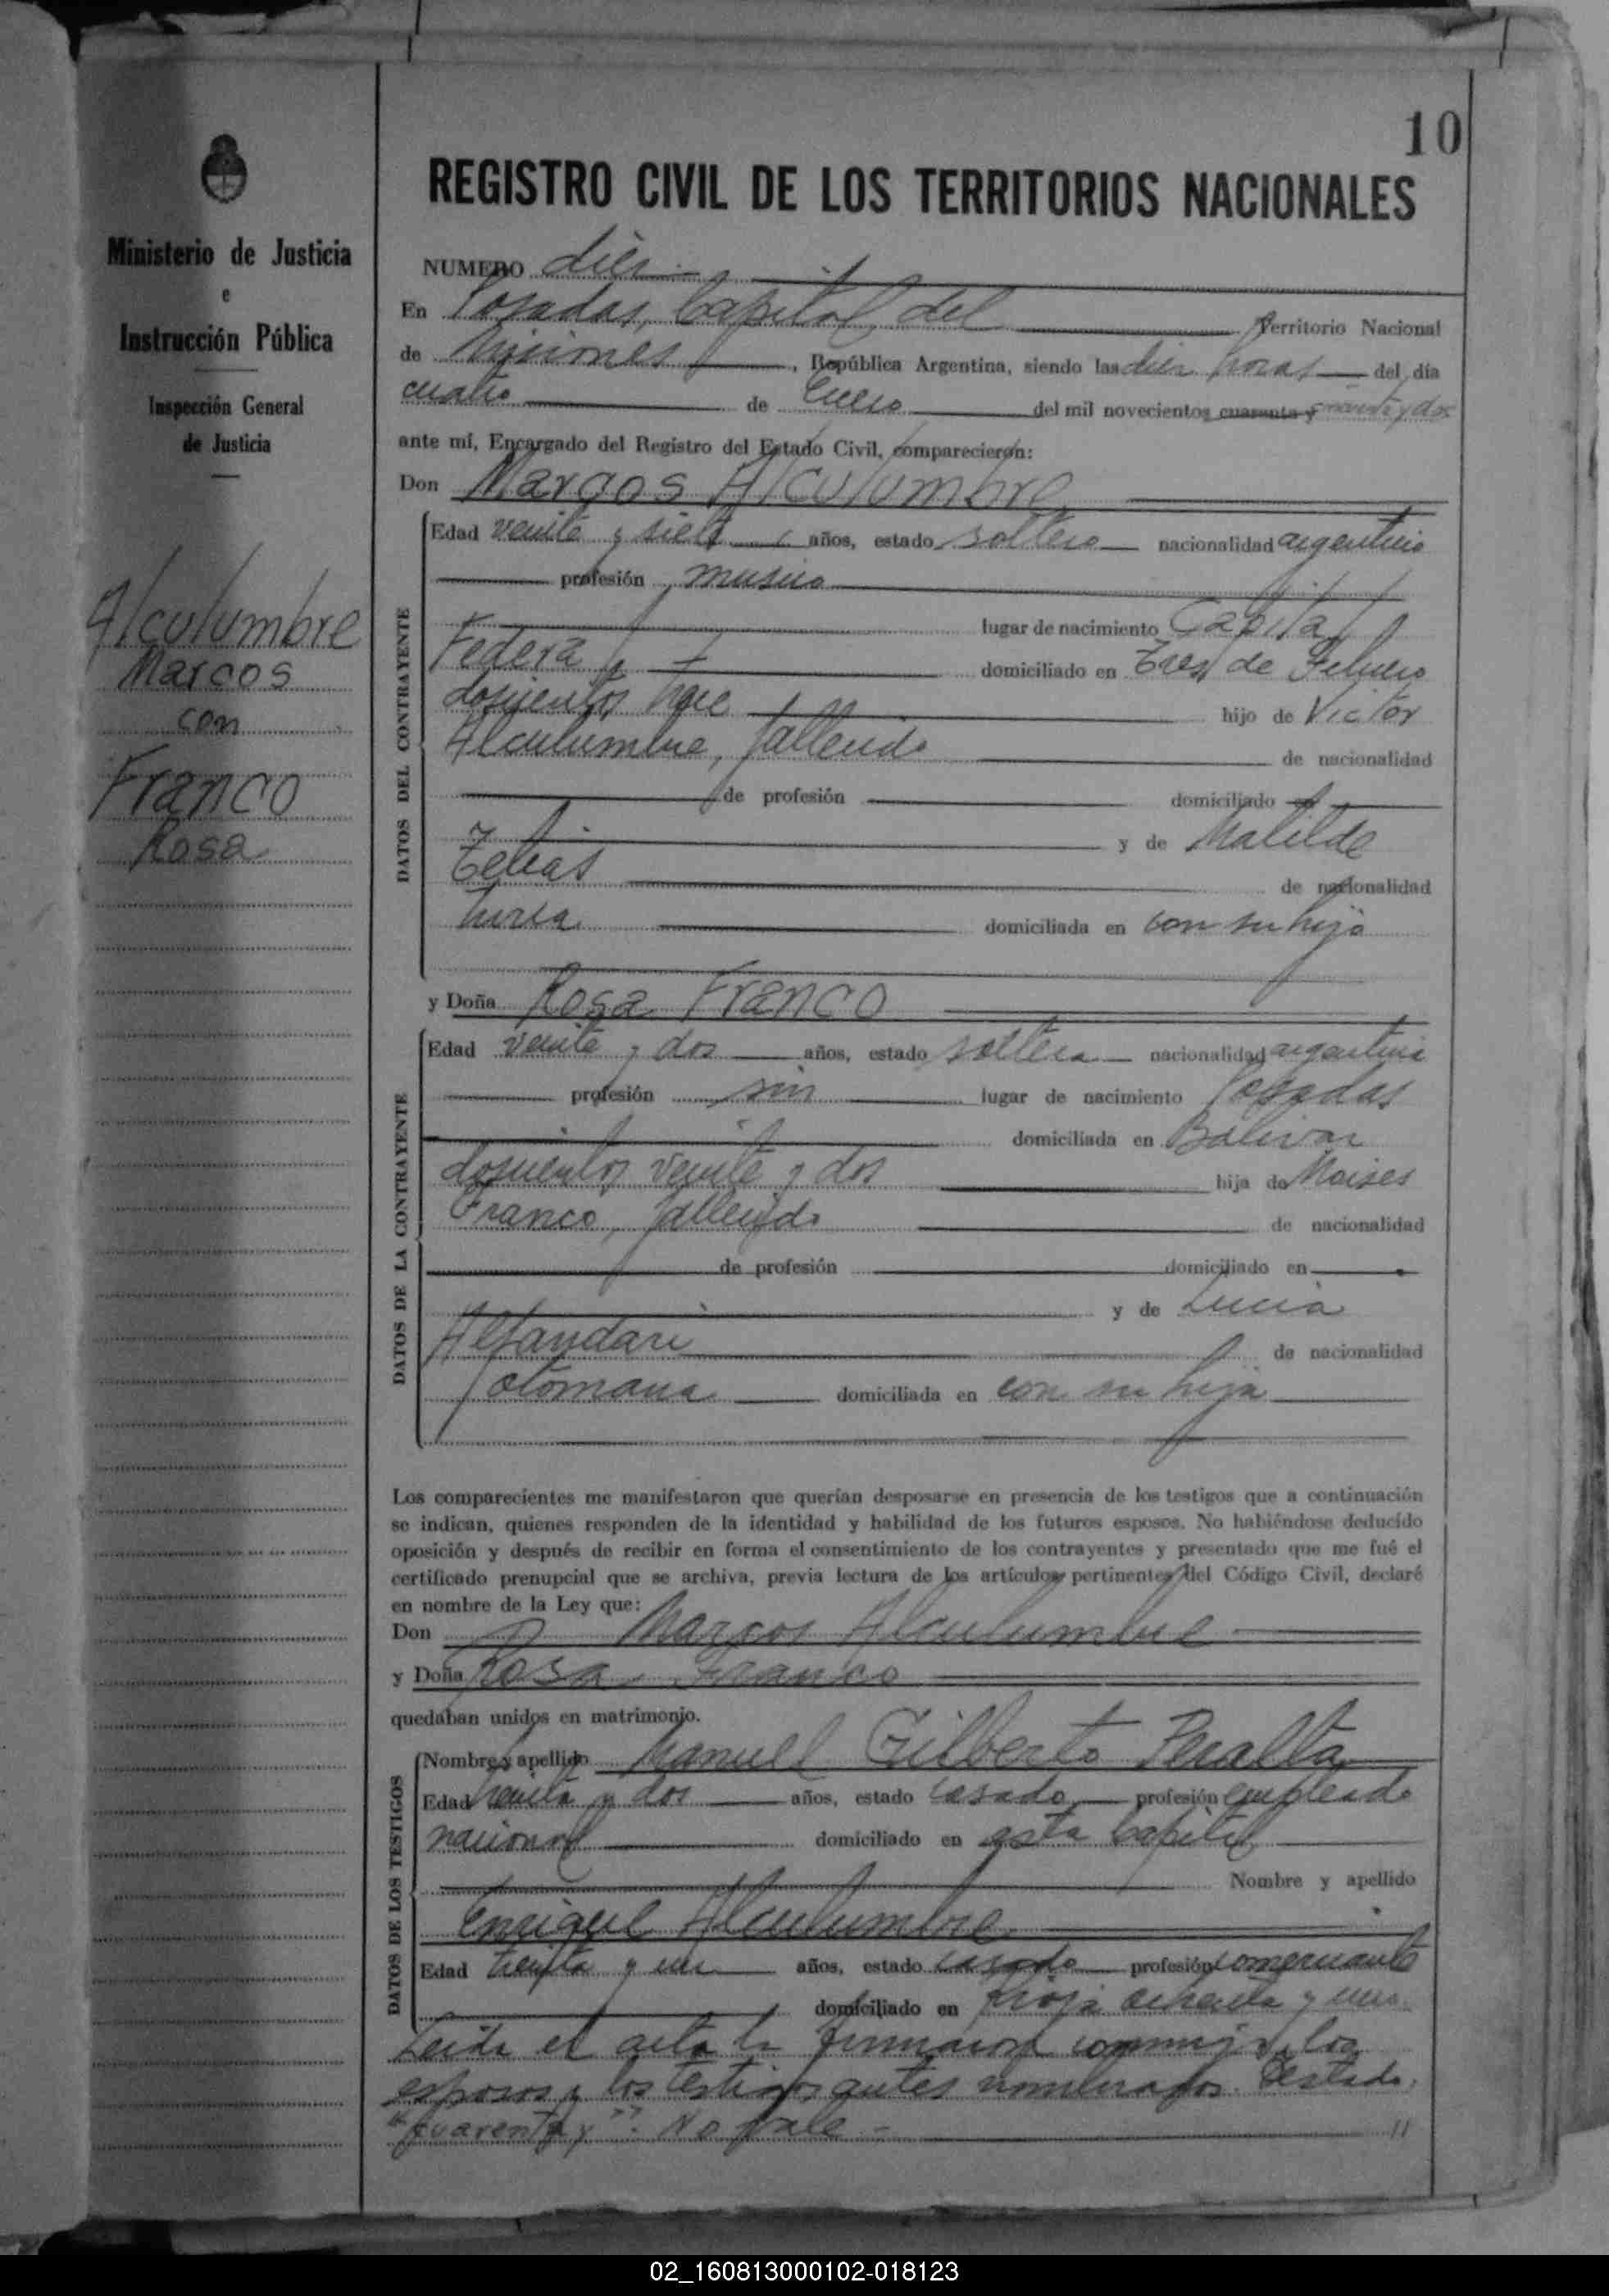 10
Ministerio de Justicia
e
Instrucción Pública
Inspección General
de Justicia
Alculumbre
Marcos
con
Franco
Rosa
REGISTRO CIVIL DE LOS TERRITORIOS NACIONALES
NUMERO diez
En Posadas, Capital del Territorio Nacional
de Misiones, República Argentina, siendo las diez horas del día
cuatro de Enero del mil novecientos cuarenta y cincuenta y dos
ante mí, Encargado del Registro del Estado Civil, comparecieron:
Don Marcos Alculumbre
DATOS DEL CONTRAYENTE
Edad veinte y siete años, estado soltero nacionalidad argentino
profesión musico
lugar de nacimiento Capital
Federal domiciliado en Tres de Febrero
doscientos hijo de Victor
Alculumbre, fallecido de nacionalidad
de profesión domiciliado en
y de Matilde
de nacionalidad
turca domiciliada en con su hijo
y Doña Rosa Franco
DATOS DE LA CONTRAYENTE
Edad veinte y dos años, estado soltera nacionalidad argentina
profesión sin lugar de nacimiento Posadas
domiciliada en Bolivar
doscientos veinte y dos hija de Moises
Franco, fallecido de nacionalidad
de profesión domiciliado en
y de Lucia
Alfandari de nacionalidad
otomana domiciliada en con su hija
Los comparecientes me manifestaron que querían desposarse en presencia de los testigos que a continuación
se indican, quienes responden de la identidad y habilidad de los futuros esposos. No habiéndose deducido
oposición y después de recibir en forma el consentimiento de los contrayentes y presentado que me fué el
certificado prenupcial que se archiva, previa lectura de los artículos pertinentes del Código Civil, declaré
en nombre de la Ley que:
Don Marcos Alculumbre
y Doña Rosa Franco
quedaban unidos en matrimonio.
DATOS DE LOS TESTIGOS
Nombre y apellido Manuel Gilberto Peralta
Edad treinta y dos años, estado casado profesión empleado
nacional domiciliado en esta Capital
Nombre y apellido
Enrique Alculumbre
Edad treinta y un años, estado casado profesión comerciante
domiciliado en Rioja ochenta y uno
Leida el acta la firmaron conmigo los
esposos y los testigos antes nombrados. Testado:
"cuarenta y": No vale -
02_160813000102-018123